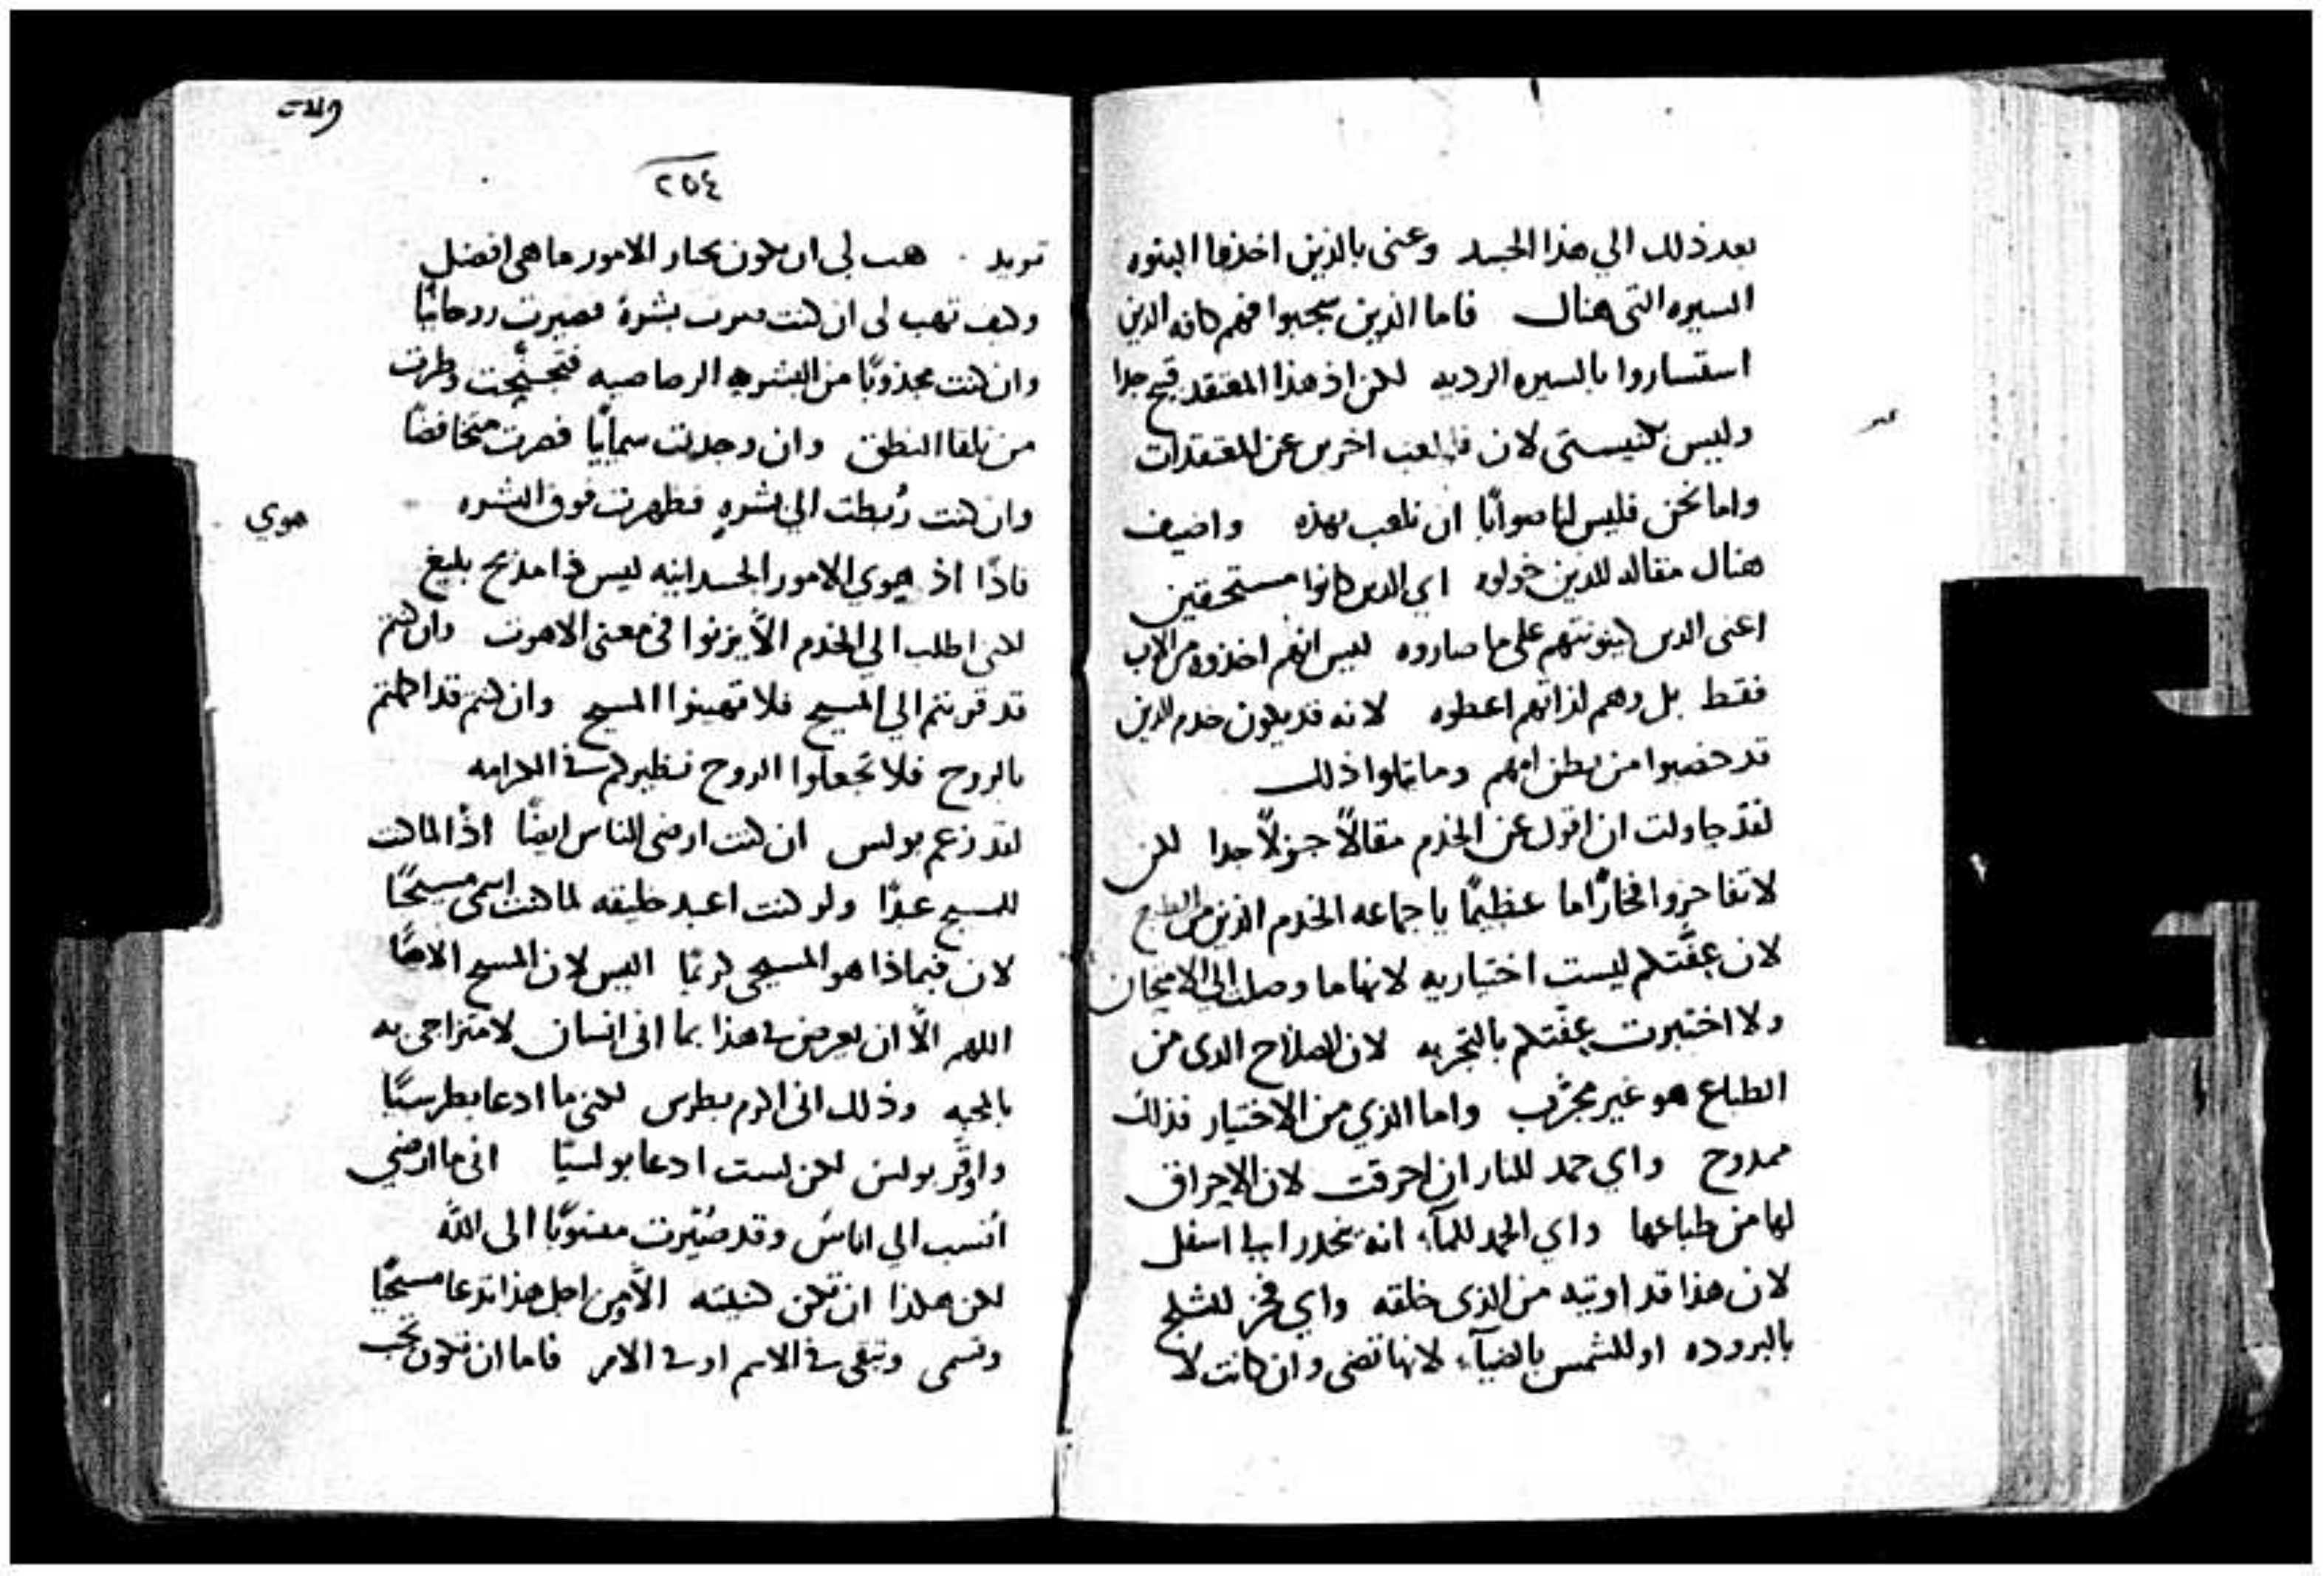 بعد ذلك الي هذا الجسد وعنى بالذين اخذوا البنوه
السيره التى هناك فاما الذين سيحبوا فهم كافه الذين
استساروا بالسيره الرديه لكن اذ هذا المعتقد قبيح جدا
وليس كنيستى لان فليلعب اخرين عن المعتقدات
واما نحن فليس لنا صوابًا ان نلعب بهذه واضيف
هناك مقاله للذين خولوه اي الذين كانوا مستحقين
اعنى الدين كينونتهم على ما صاروه ليس انهم اخذوه من الاب
فقط بل وهم لذاتهم اعطوه لانه قد يكون خدم الذين
قد خصيوا من بطن امهم وما تتلوا ذلك
لقد حاولت ان اقول عن الخدم مقالاً جزلاً جدا لكن
لا تفاخروا افخارًا ما عظيمًا يا جماعه الخدم الذين من الطبع
لان عفّتكم ليست اختياريه لانها ما وصلت الي الامتحان
ولا اختبرت عفّتكم بالتجربه لان الصلاح الدى من
الطباع هو غير مجرّب واما الذي من الاختيار فذلك
ممدوح واي حمد للنار ان احرقت لان الاحراق
لها من طباعها واي الحمد للمآء انه ينحدر الى اسفل
لان هذا قد اوتيه من الذى خلقه واي فخر للثلج
بالبروده او للشمس بالضيآء لانها تضى وان كانت لا
٢٥٤
تريد هب لى ان يكون يختار الامور ما هى افضل
وكيف تهب لى ان كنت صرت بشرة فصيرت روحانيًا
وان كنت مجذوبًا من البشريه الرصاصيه فتجنّحت وطرت
من تلقا النطق وان وجدت سمايًا فصرت متخافضًا
وان كنت رُبطت الي بشرهٍ فظهرت فوق البشره
هوي
فاذًا اذ هوي الامور الجسدانيه ليس ذا مديح بليغ
لكنى اطلب الي الخدم الاّ يزنوا فى معنى الاهوت وان كنتم
قد قرنتم الي المسيح فلا تهينوا المسيح وان كنتم قد اكملتم
بالروح فلا تجعلوا الروح نظيركم في الكرامه
لقد زعم بولس ان كنت ارضى الناس ايضًا اذًا لما كنت
للمسيح عبدًا ولو كنت اعبد خليقه لما كنت اسمى مسيحيًا
لان فبماذا هو المسيحى كريمًا اليس لان المسيح الاهًا
اللهم الاّ ان يعرض في هذا بما انى انسان لامتزاجى به
بالمحبه وذلك انى اكرم بطرس لكنى ما ادعا بطرسيًا
واوقّر بولس لكن لست ادعا بولسيًا انى ما ارضى
انسب الي اناس وقد صُيّرت منسوبًا الى اللّه
لكن هكذا ان تكن كنيته الاّ من اجل هذا تدعا مسيحيًا
وتسمى وتبقى في الاسم او في الامر فاما ان تكون تحب